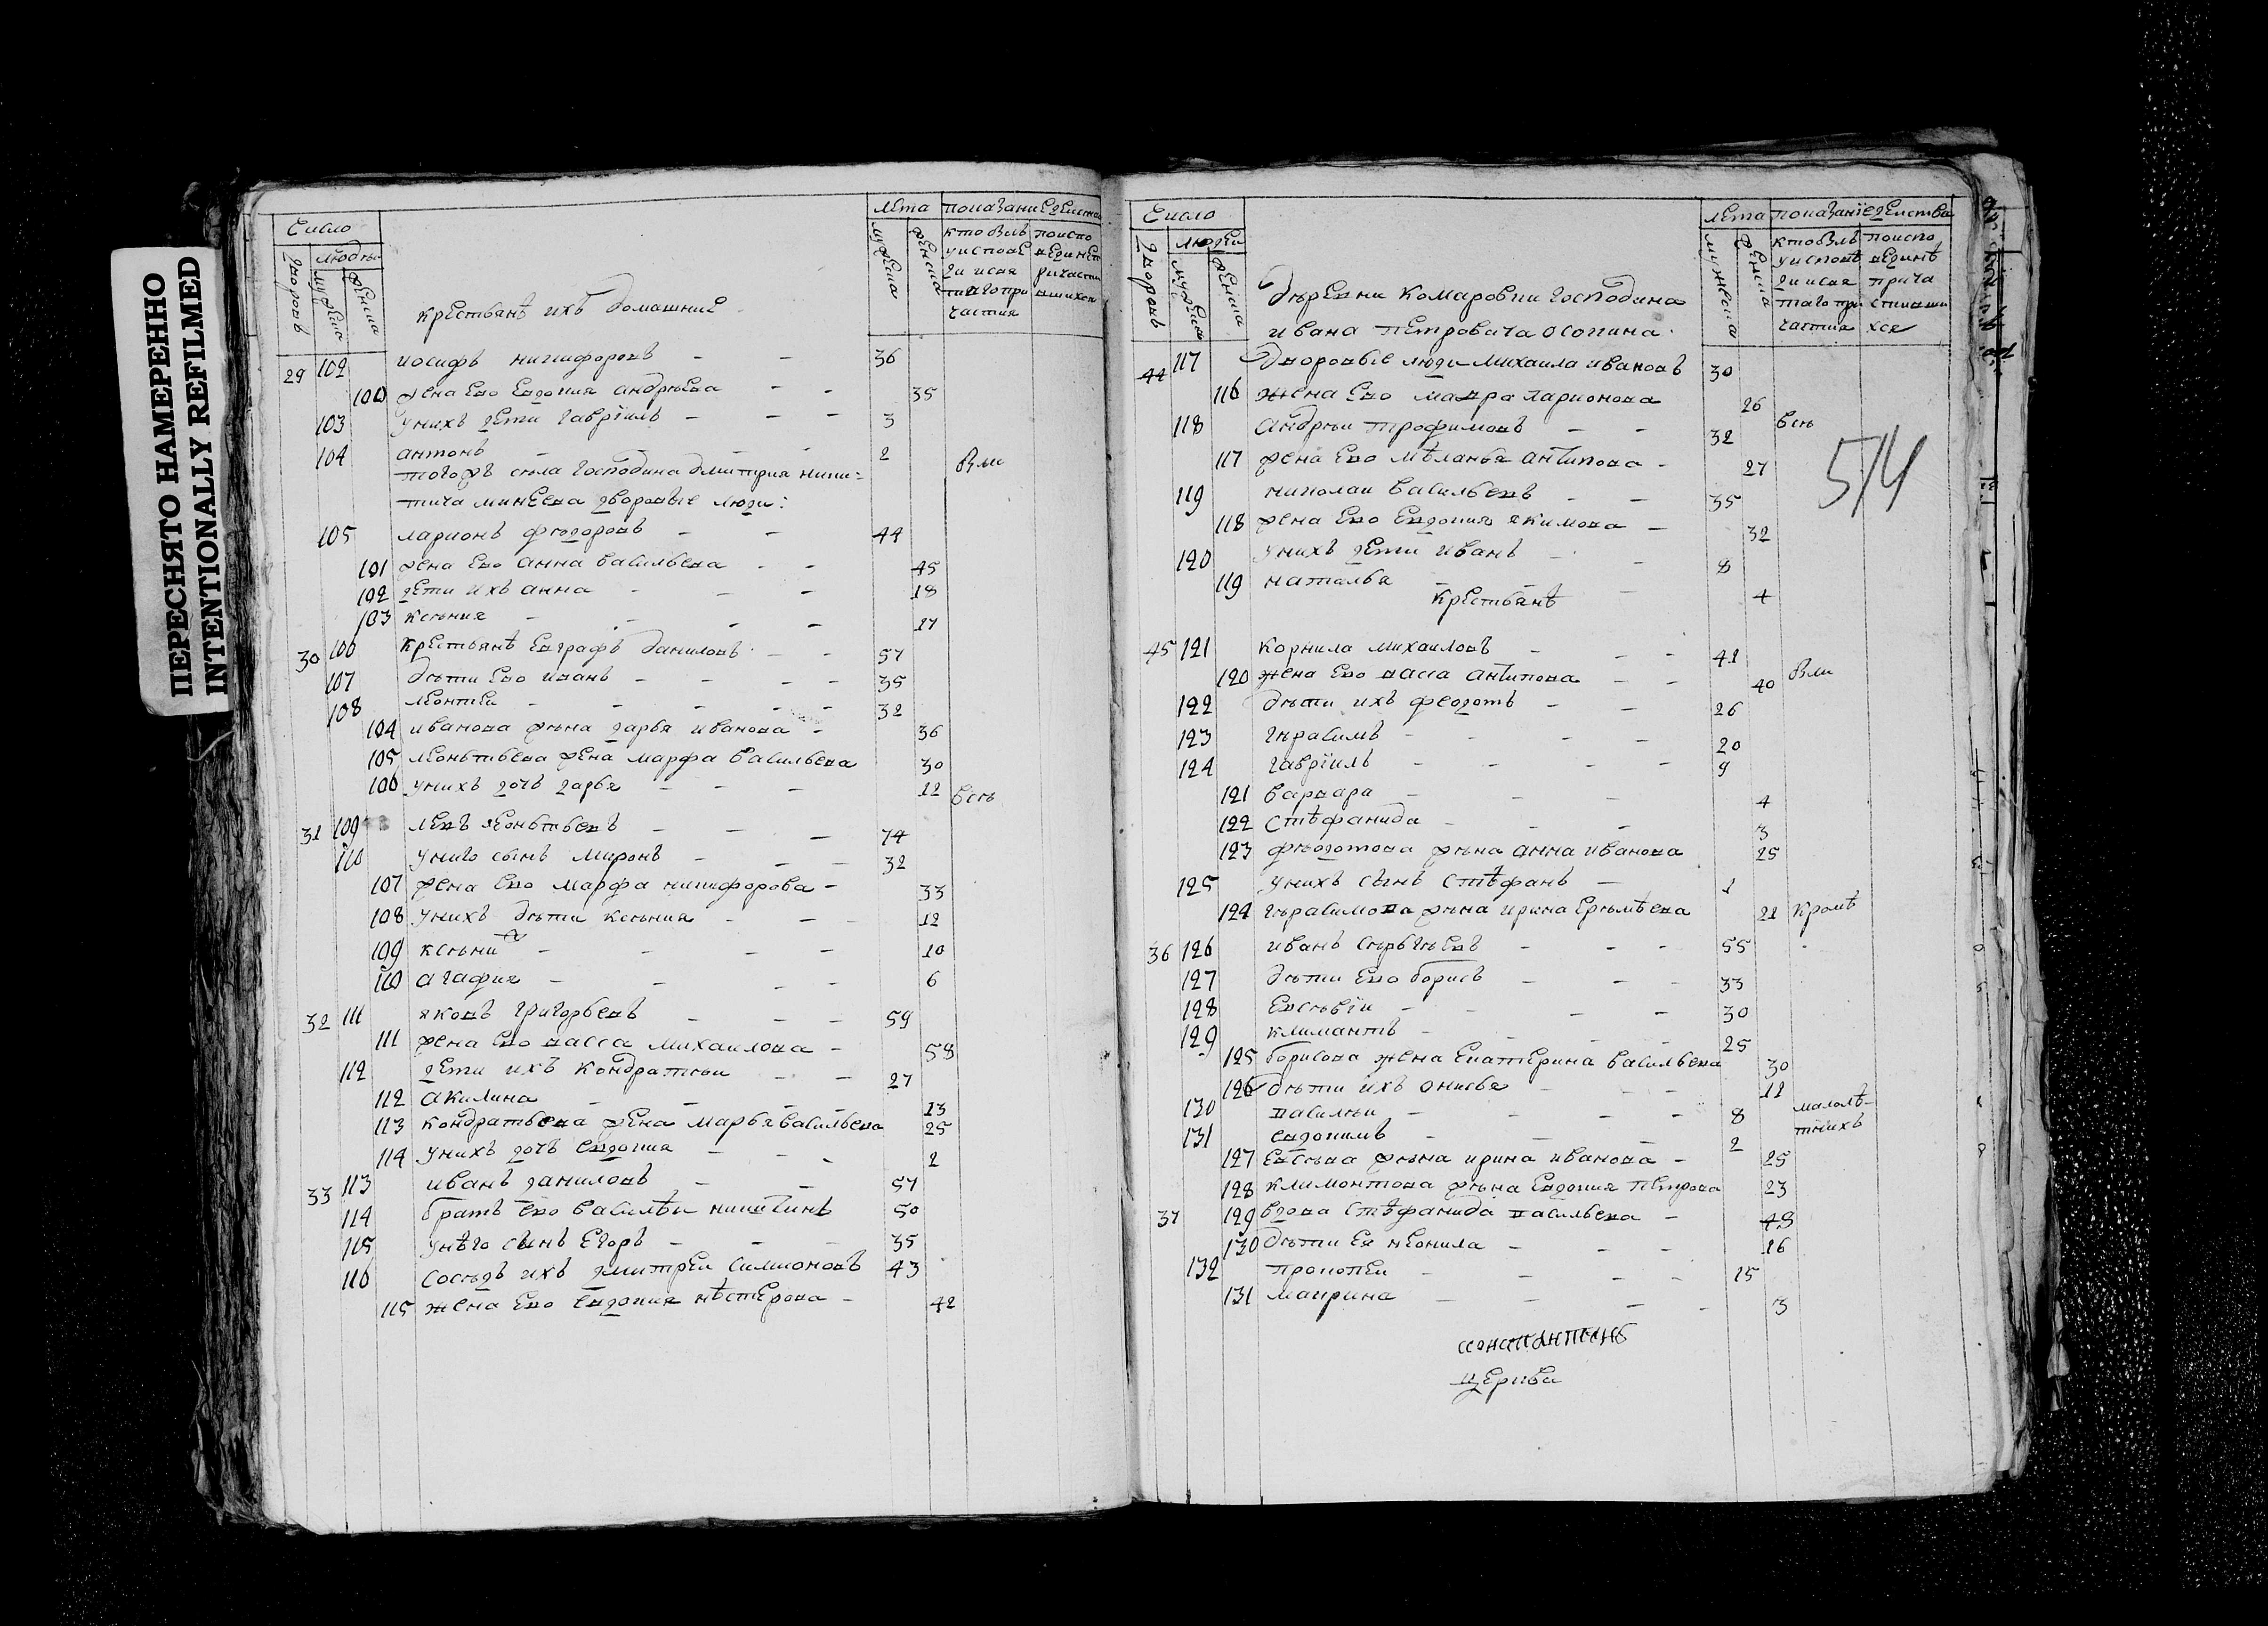 ПЕРЕСНЯТО НАМЕРЕННО
INTENTIONALLY REFILMED
Число
людеи
дворовъ
мужеска
женска
лета
мужеска
женска
показание деиства
кто былъ
у исповѣ
ди и свя
таго при
частия
крестьянѣ ихъ домашние
29 102 иосифъ никифоровъ 36
100 жена ево евдокия андрѣева 35
103 у нихъ дети гаврїилъ 3
104 антонъ 2
тогожъ села господина дмитрия ники=
тича минѣева дворовые люди: были
105 ларионъ фѣодоровъ 44
101 жена ево анна васильева 45
102 дети ихъ анна 18
103 ксѣния 17
30 106 крестьянѣ евграфъ даниловъ 57
107 дѣти ево иванъ 35
108 леонтеи 32
104 иванова жѣна дарья иванова 36
105 леоньтьева жена марфа васильева 30
106 у нихъ дочь дарья 12 всѣ
31 109 левъ леоньтьевъ 74
110 у ниго сынъ миронъ 32
107 жена ево марфа никифорова 33
108 у нихъ дѣти ксѣния 12
109 ксѣния 10
110 агафия 6
32 111 яковъ григорьевъ 59
111 жена ево васса михаилова 58
112 дети ихъ кондратѣи 27
112 акилина 13
113 кондратьева жена марья васильева 25
114 у нихъ дочь евдокия 2
33 113 иванъ даниловъ 57
114 братъ ево василѣи никитинъ 50
115 у нѣго сынъ егоръ 35
116 сосѣдъ ихъ дмитреи симионовъ 43
115 жена ево евдокия нѣстерова 42
Число
людеи
дворовъ
мужеска
женска
лета
мужеска
женска
показанїе деиства
кто былъ
у исповѣ
ди и свя
таго при
частия
по испо
вединѣ
прича
стивши
хся
дѣревни комаровки господина
ивана петровича осокина
44 117 дворовые люди михаила ивановъ 30
116 жена ево мавра ларионова 26
118 андрѣи трофимовъ 32 всѣ
117 жена ево мѣланья антипова 27
514
119 николаи васильевъ 35
118 жена ево евдокия якимова 32
120 у нихъ дети иванъ 8
119 наталья 4
крестьянѣ
45 121 корнила михаиловъ 41
120 жена ево васса антипова 40 были
122 дѣти ихъ феодотъ 26
123 гѣрасимъ 20
124 гаврїилъ 9
121 варвара 4
122 стѣфанида 3
123 фѣодотова жѣна анна иванова 25
125 у нихъ сынъ стѣфанъ 1
124 гѣрасимова жѣна ирина ерѣмѣева 21 кромѣ
36 126 иванъ сѣргѣевъ 55
127 дѣти ево борисъ 33
128 евсѣвїи 30
129 климантъ 25
125 борисова жена екатерина васильева 30
126 дѣти ихъ онисья 11
130 василѣи 8 малолѣ-
131 евдокимъ 2 тнихъ
127 евсѣва жѣна ирина иванова 25
128 климонтова жѣна евдокия петрова 23
37 129 вдова стѣфанида васильева 49
130 дѣти ея неонила 16
132 прокопеи 15
131 маирина 3
константинъ
церква